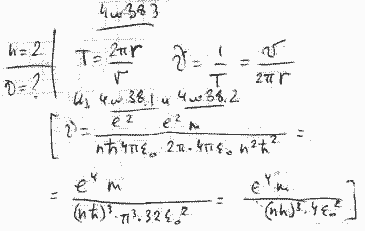 4ш383
n=2
ν=?
T = 2πr/v   ν = 1/T = v/2πr
Из 4ш38.1 и 4ш38.2
[ν = e² e² m / nħ4πε₀ · 2π · 4πε₀ n²ħ² =
= e⁴ m / (nħ)³ · π³ · 32ε₀² = e⁴ m / (nh)³ · 4ε₀²]